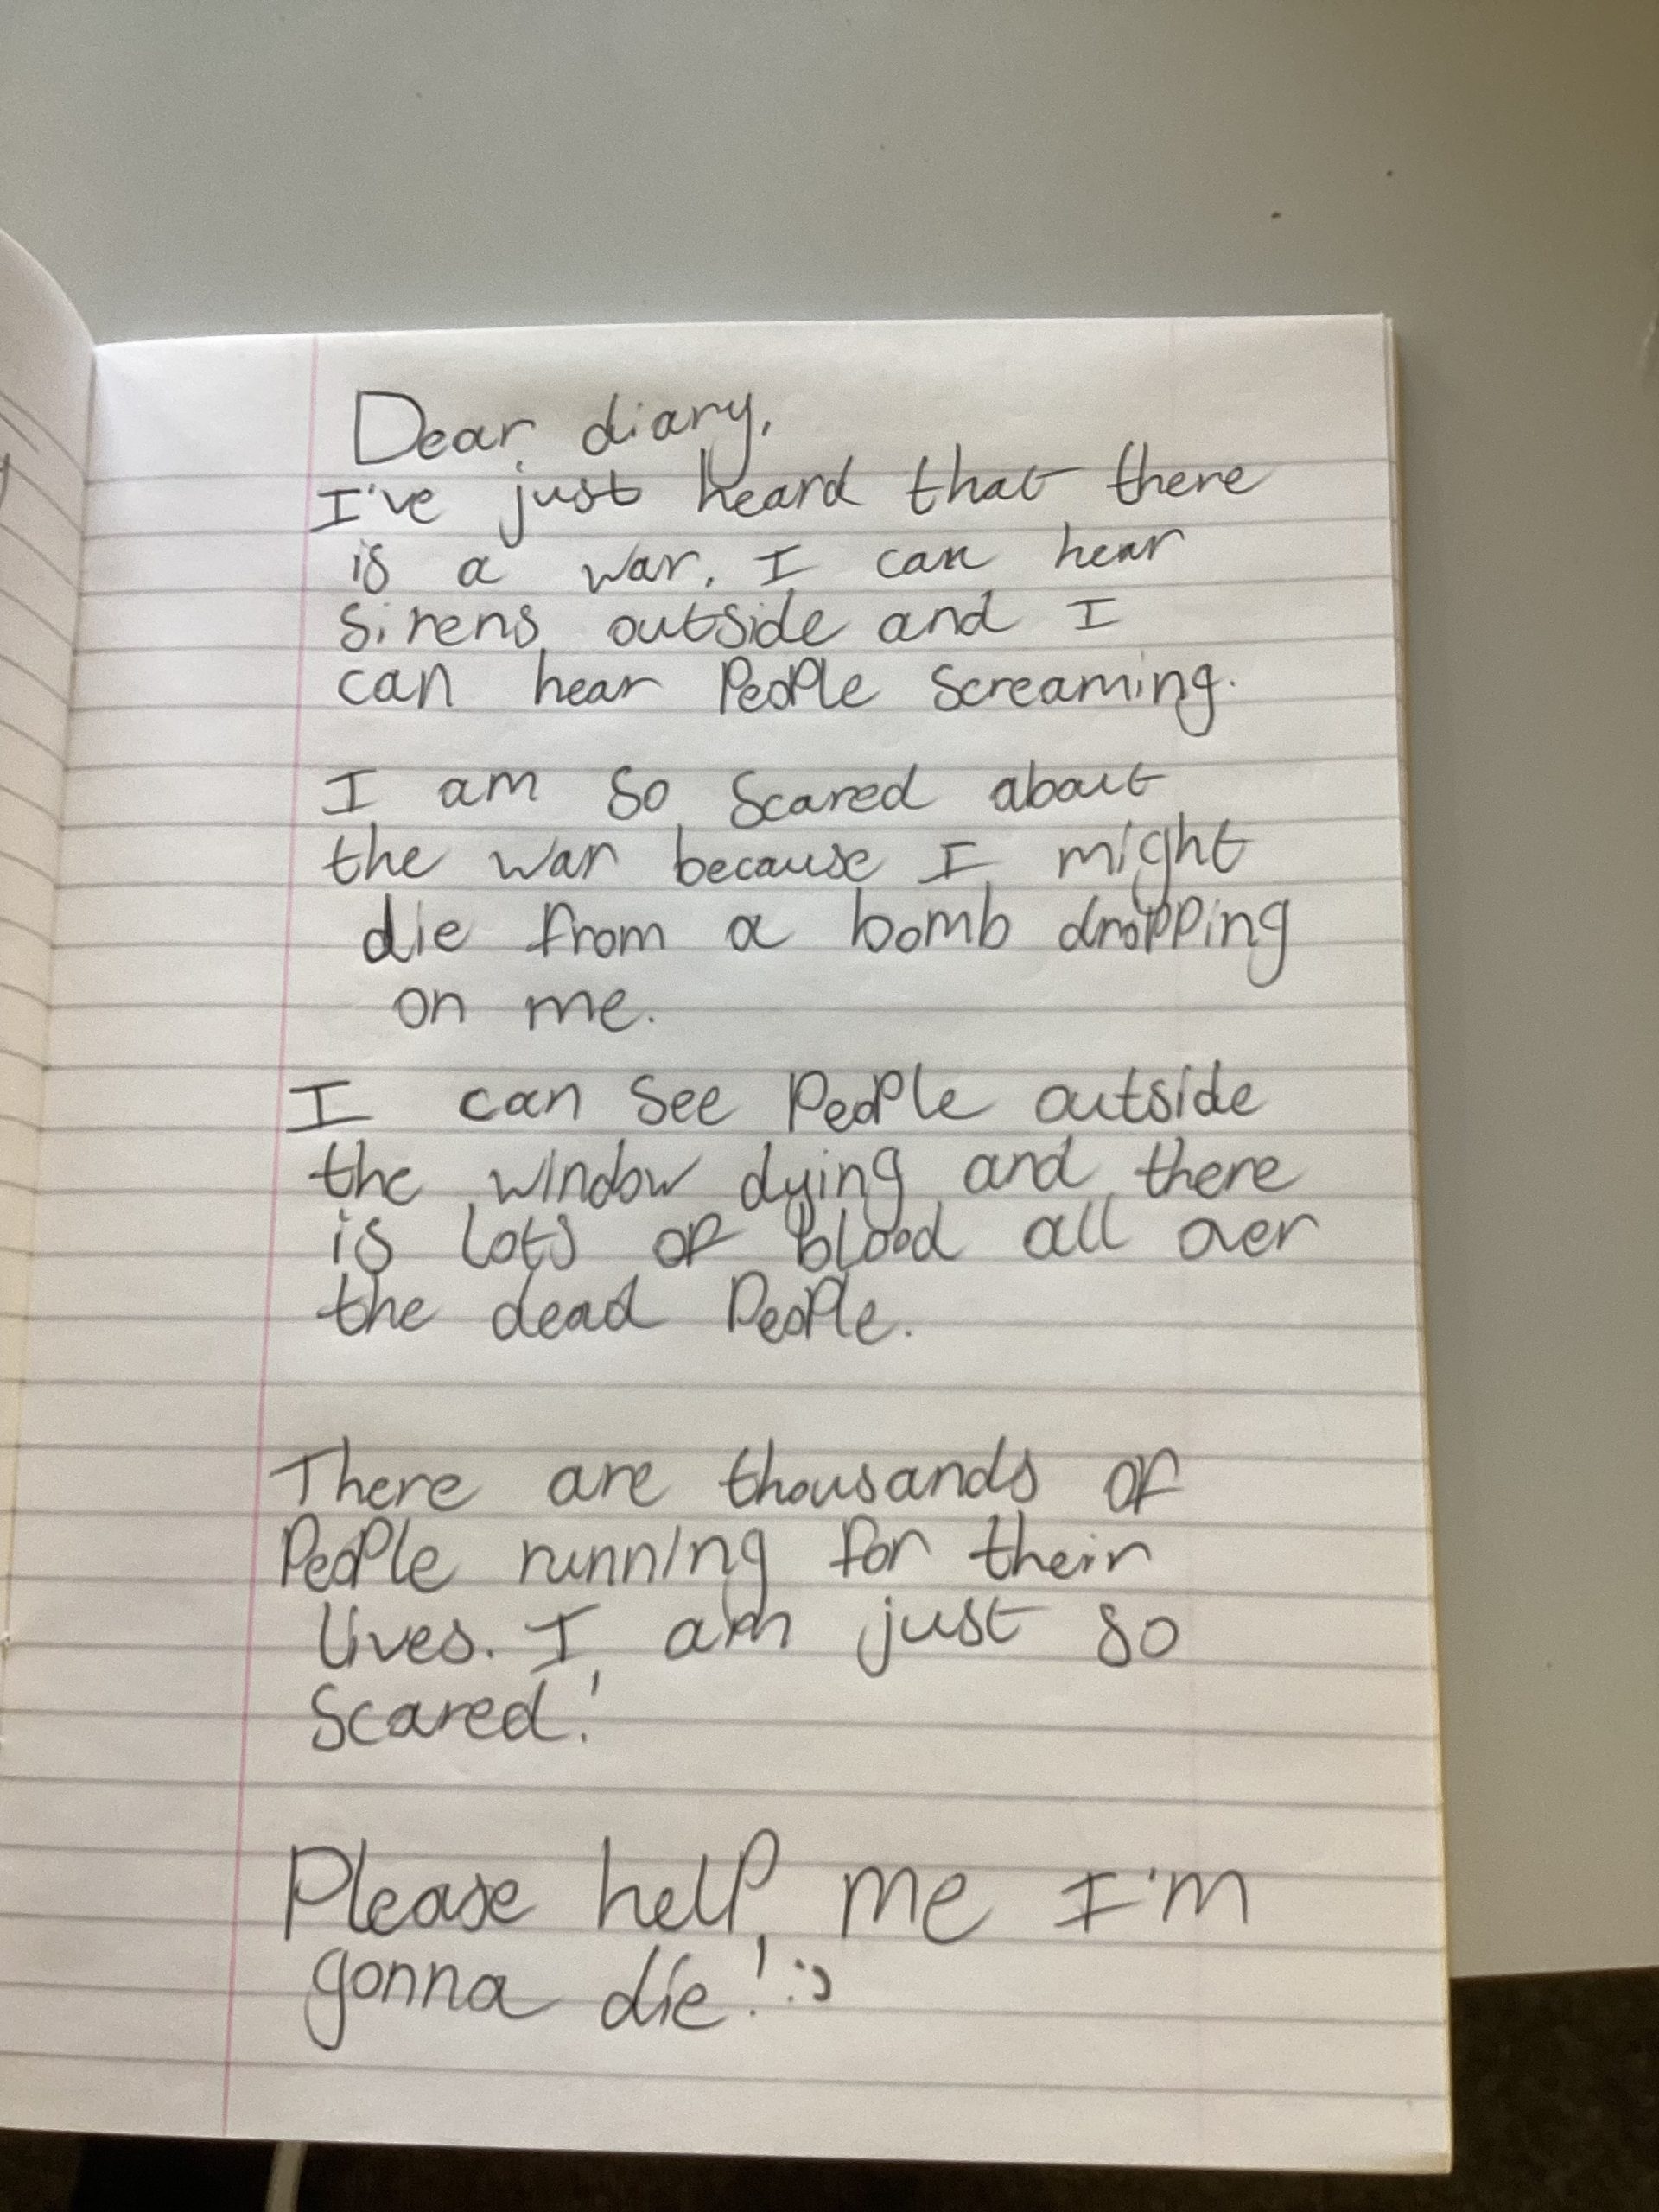 Dear diary,
I've just heard that there
is a war. I can hear
sirens outside and I
can hear People screaming.
I am so scared about
the war because I might
die from a bomb dropping
on me.
I can see People outside
the window dying and there
is lots of blood all over
the dead People.
There are thousands of
People running for their
lives. I am just so
scared!
Please help me I'm
gonna die! :)